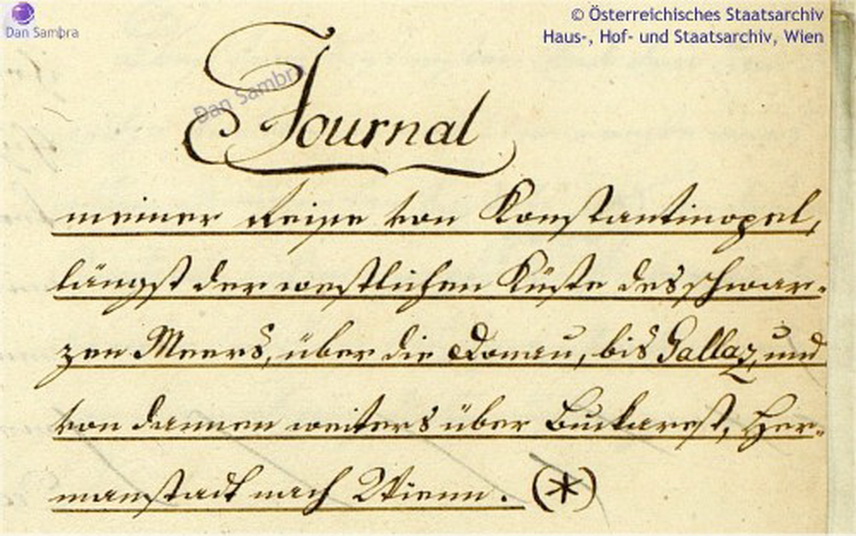 Dan Sambra
© Österreichisches Staatsarchiv
Haus-, Hof- und Staatsarchiv, Wien
Dan Sambra
Journal
meiner Reise von Konstantinopel,
längst der westlichen Küste des schwar-
zen Meers, über die Donau, bis Gallaz, und
von dannen weiters über Bukarest, Her-
manstadt nach Wienn. (*)